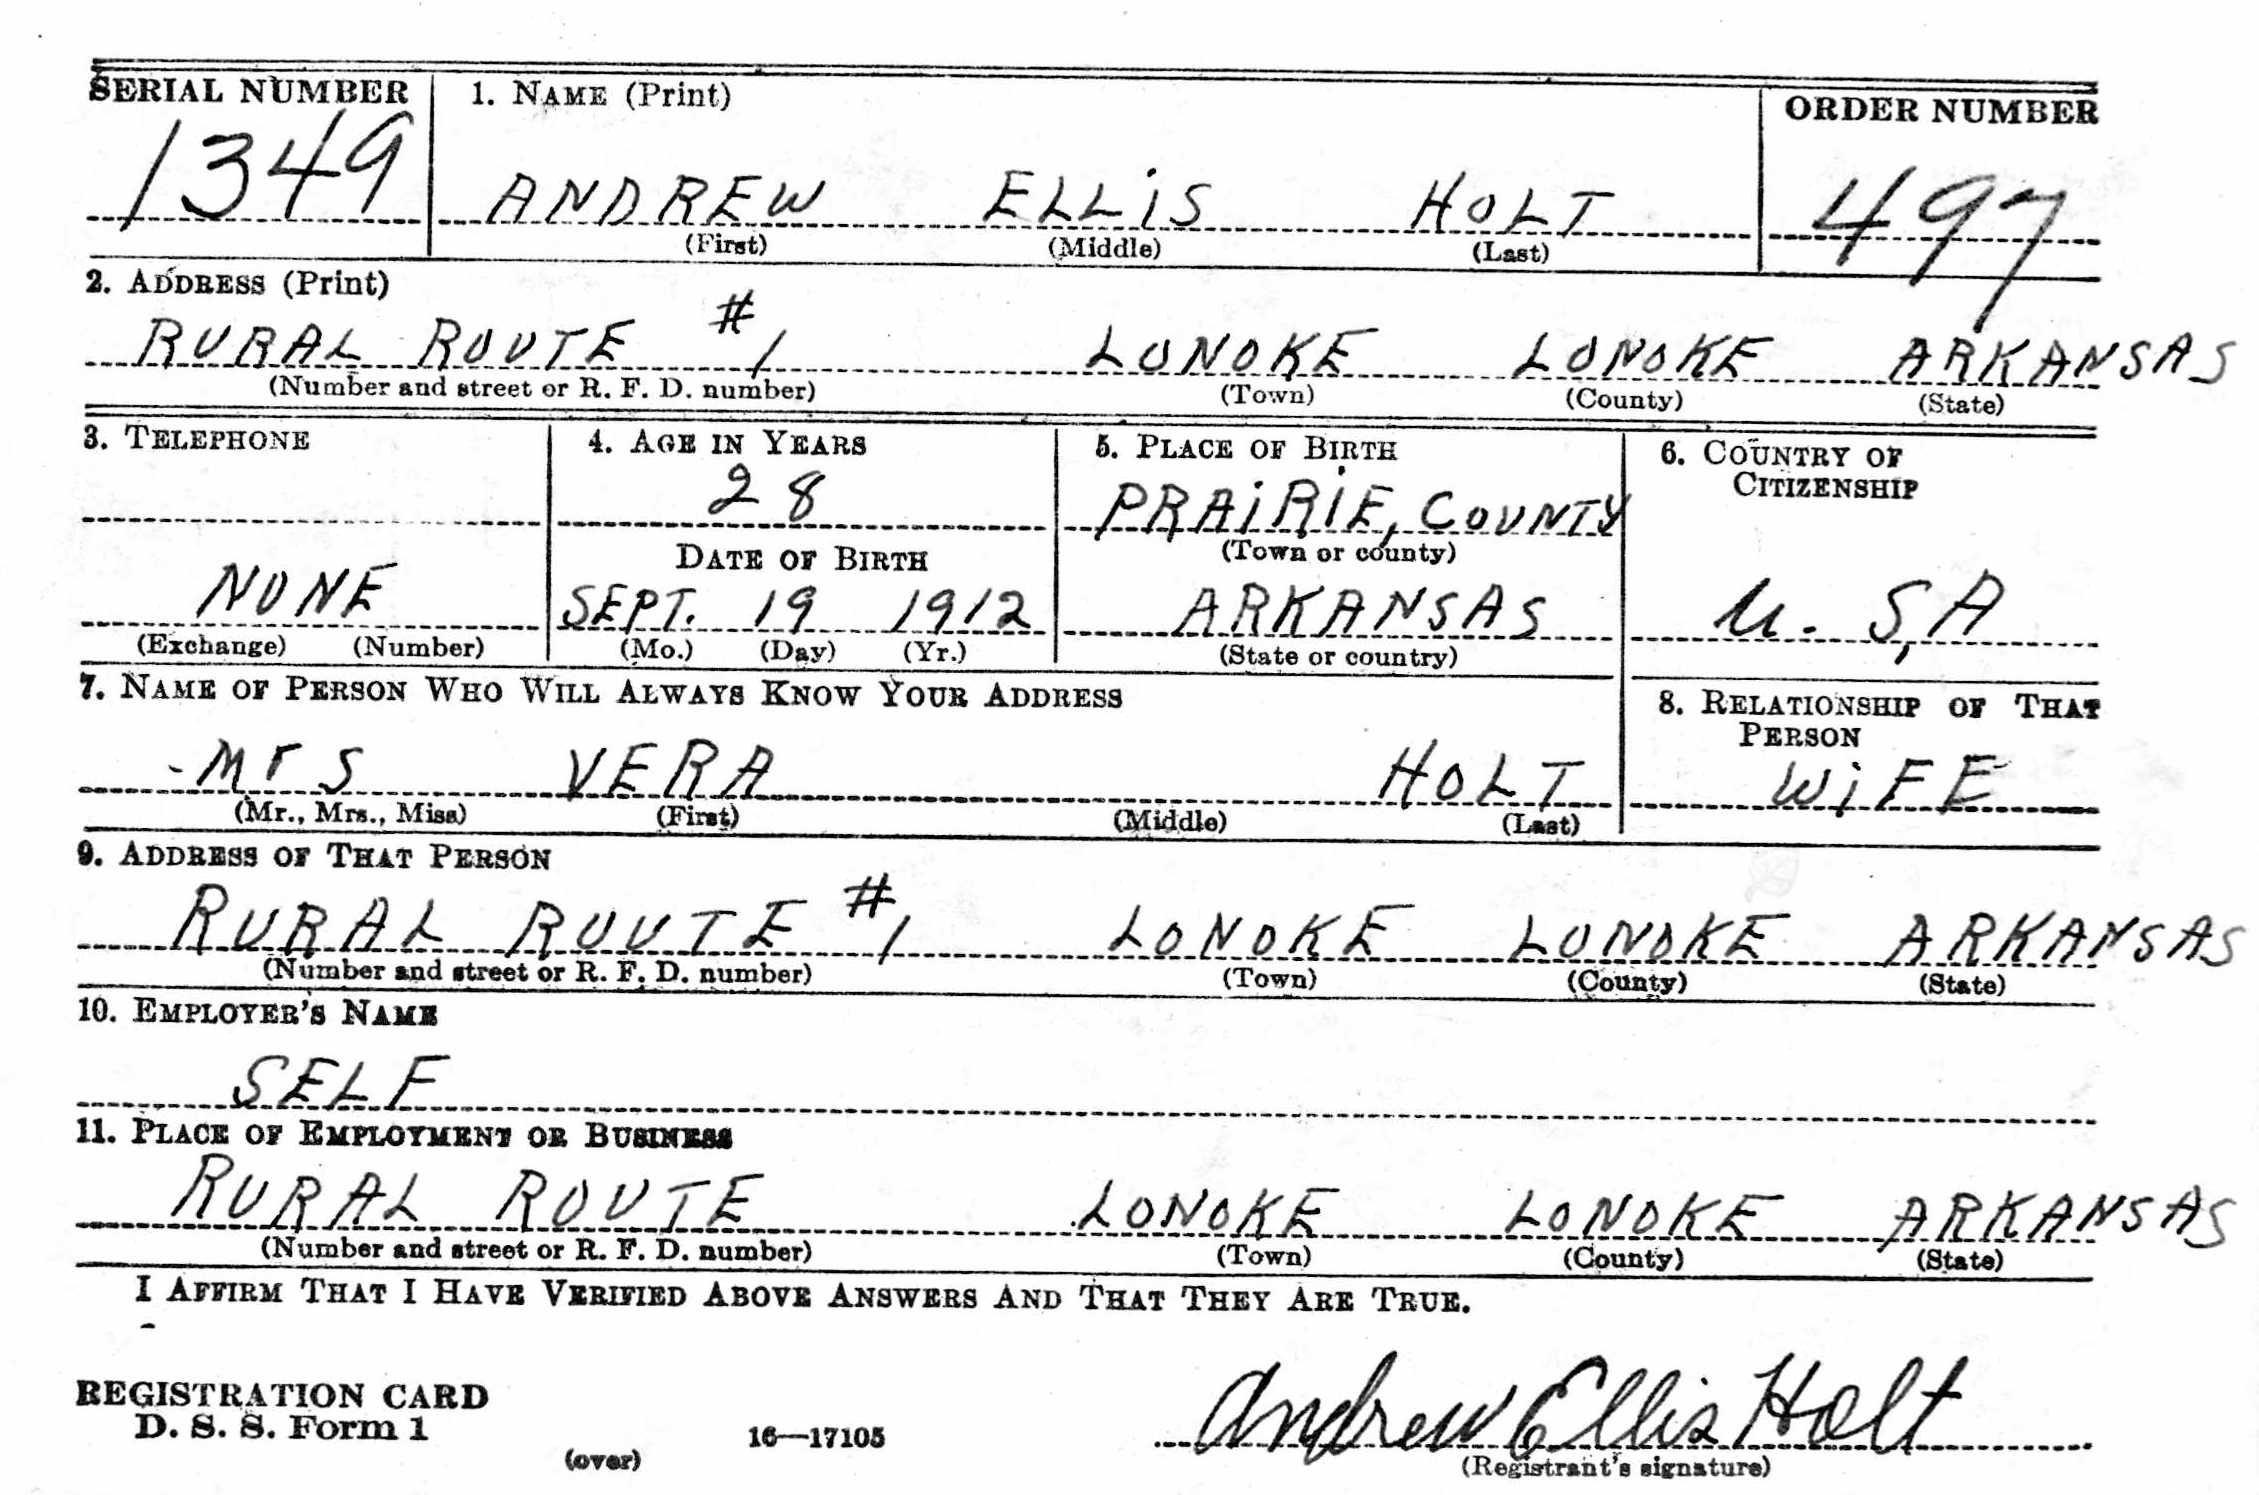 SERIAL NUMBER 1. NAME (Print) ORDER NUMBER
1349 ANDREW ELLIS HOLT 497
(First) (Middle) (Last)
2. ADDRESS (Print)
RURAL ROUTE #1 LONOKE LONOKE ARKANSAS
(Number and street or R. F. D. number) (Town) (County) (State)
3. TELEPHONE 4. AGE IN YEARS 5. PLACE OF BIRTH 6. COUNTRY OF
CITIZENSHIP
28 PRAIRIE, COUNTY
DATE OF BIRTH (Town or county)
NONE SEPT. 19 1912 ARKANSAS U. S, A
(Exchange) (Number) (Mo.) (Day) (Yr.) (State or country)
7. NAME OF PERSON WHO WILL ALWAYS KNOW YOUR ADDRESS 8. RELATIONSHIP OF THAT
PERSON
Mrs VERA HOLT WIFE
(Mr., Mrs., Miss) (First) (Middle) (Last)
9. ADDRESS OF THAT PERSON
RURAL ROUTE #1 LONOKE LONOKE ARKANSAS
(Number and street or R. F. D. number) (Town) (County) (State)
10. EMPLOYER'S NAME
SELF
11. PLACE OF EMPLOYMENT OR BUSINESS
RURAL ROUTE LONOKE LONOKE ARKANSAS
(Number and street or R. F. D. number) (Town) (County) (State)
I AFFIRM THAT I HAVE VERIFIED ABOVE ANSWERS AND THAT THEY ARE TRUE.
REGISTRATION CARD
D. S. S. Form 1 16—17105 Andrew Ellis Holt
(over) (Registrant's signature)